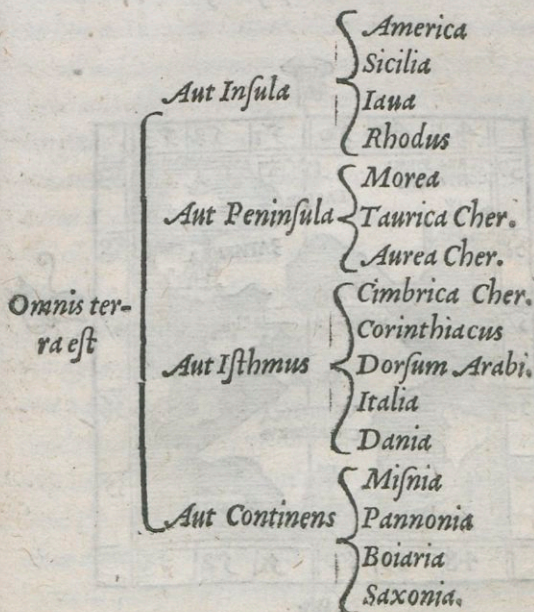 Omnis ter-
ra est
Aut Inſula
America
Sicilia
Iaua
Rhodus
Aut Peninſula
Morea
Taurica Cher.
Aurea Cher.
Aut Iſthmus
Cimbrica Cher.
Corinthiacus
Dorſum Arabi.
Italia
Dania
Aut Continens
Miſnia
Pannonia
Boiaria
Saxonia.